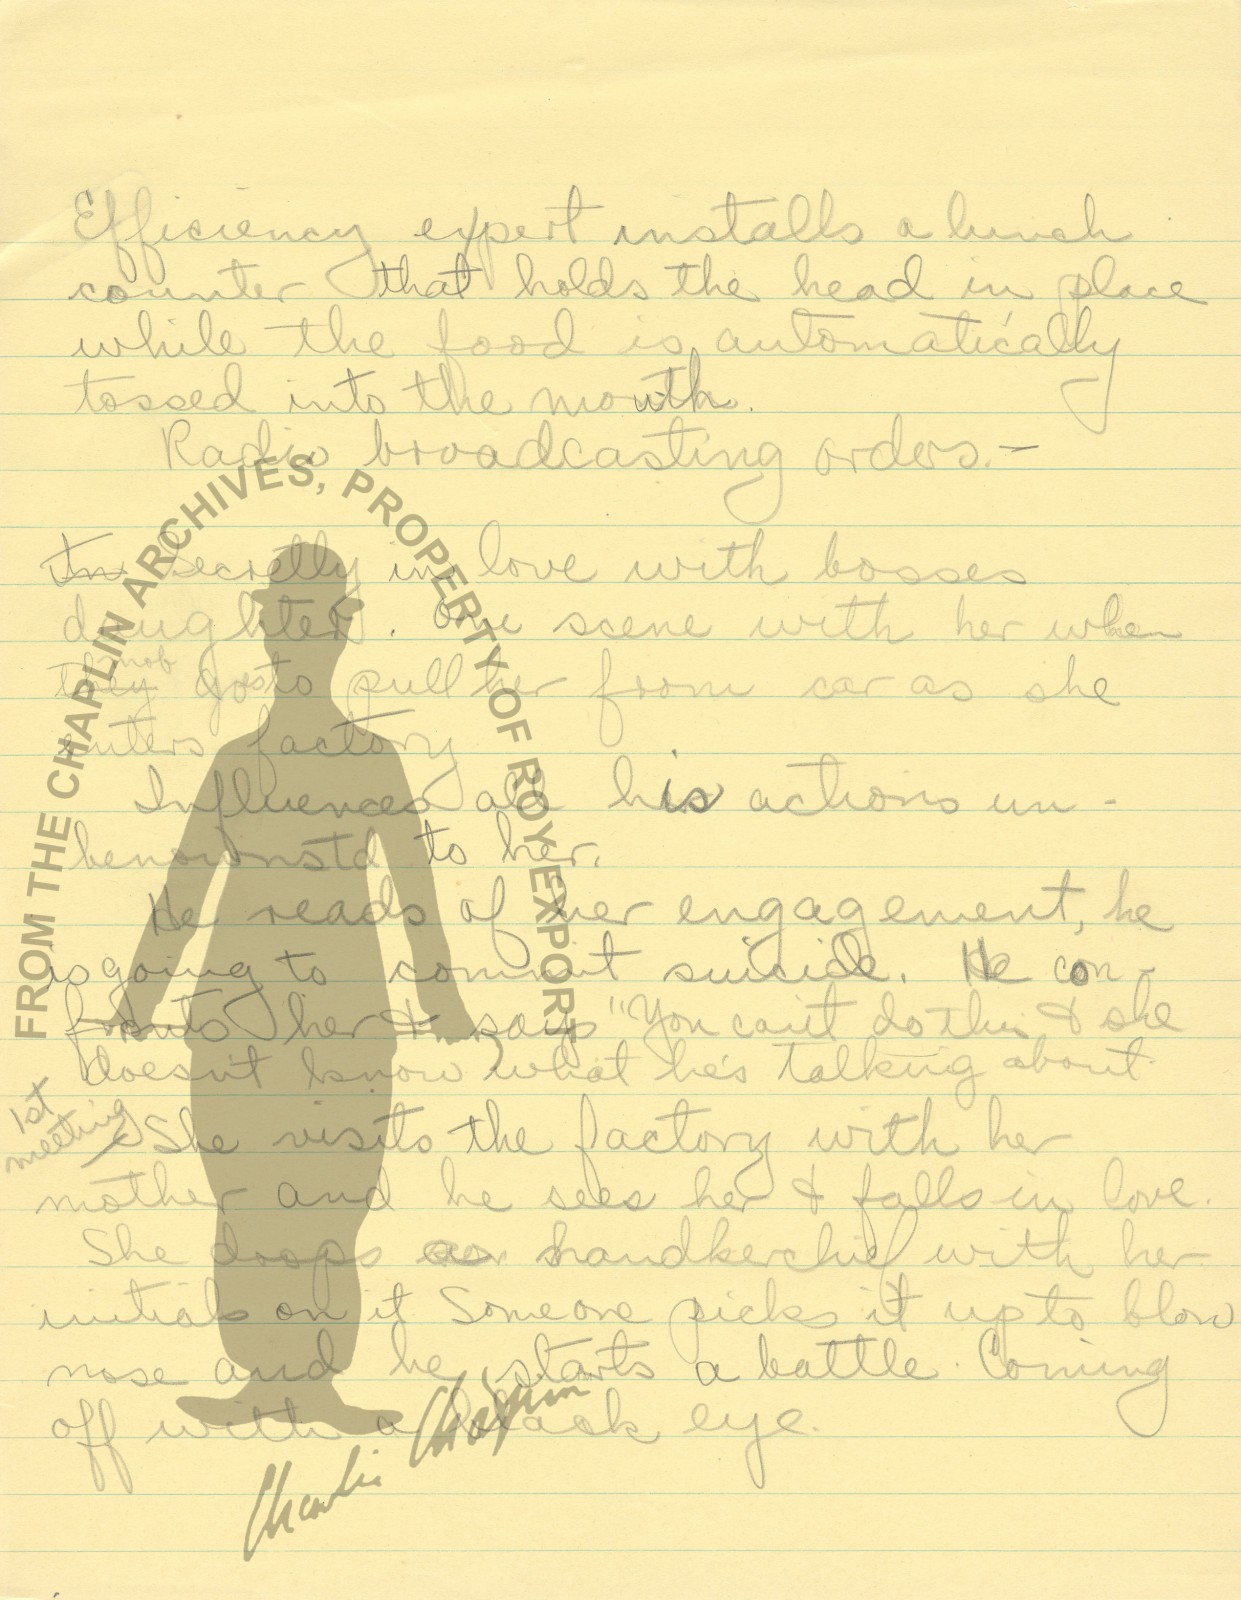 Efficiency expert installs a lunch
counter that holds the head in place
while the food is automatically
tossed into the mouth.
Radio broadcasting orders. —
In Secretly in love with bosses
daughter. One scene with her when
they mob goes to pull her from car as she
enters factory
Influences all his actions un-
benownstd to her.
He reads of her engagement, he
is going to commit suicide. He con-
fronts her & says "You can't do this & she
doesn't know what he's talking about
1st
meeting
She visits the factory with her
mother and he sees her & falls in love.
She drops handkerchief with her
initials on it Someone picks it up to blow
nose and he starts a battle. Coming
off with a black eye.
FROM THE CHAPLIN ARCHIVES, PROPERTY OF ROY EXPORT
Charlie Chaplin